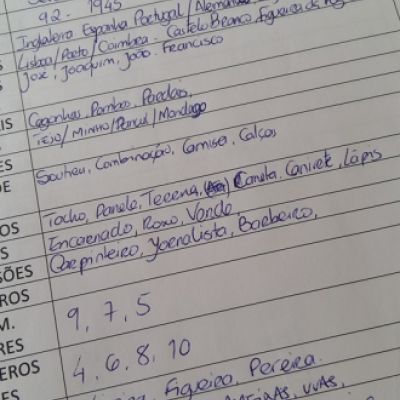 92. 1945
Inglaterra Espanha Portugal / Alemanha
Lisboa / Porto / Coimbra. Castelo Branco, Figueira da
S José, Joaquim, João. Francisco
IS Cegonhas, Pombas, Pardais,
TEJO / MINHO / / Mondego
ES
DE Soutien, Combinação, Camisa, Calças
OS Tacho, Panela, Terrina, Caneta, Canivete, Lápis
S Encarnado, Roxo, Verde
SÕES Carpinteiro, Jornalista, Barbeiro,
ROS
M. 9, 7, 5
RES
EROS 4, 6, 8, 10
ES Figueira, Pereira.
UVAS,